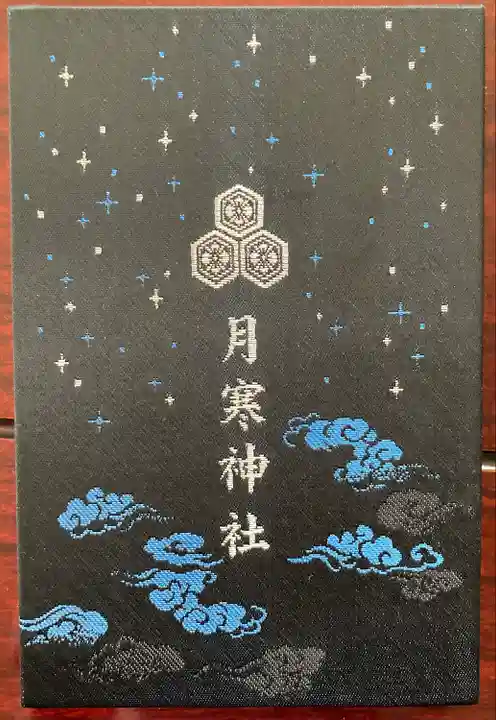 月寒神社